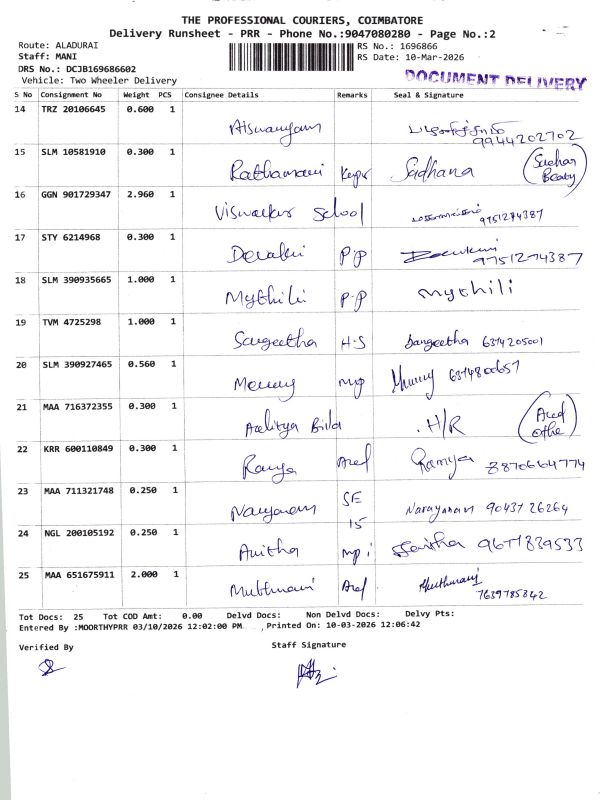 THE PROFESSIONAL COURIERS, COIMBATORE
Delivery Runsheet - PRR - Phone No.:9047080280 - Page No.:2
Route: ALADURAI
RS No.: 1696866
Staff: MANI
RS Date: 10-Mar-2026
DRS No.: DCJB169686602
Vehicle: Two Wheeler Delivery
DOCUMENT DELIVERY
S No Consignment No Weight PCS Consignee Details Remarks Seal & Signature
14 TRZ 20106645 0.600 1
9944202702
15 SLM 10581910 0.300 1 Sadhana
16 GGN 901729347 2.960 1 School 9751274387
17 STY 6214968 0.300 1 Devaki P.P 9751274387
18 SLM 390935665 1.000 1 Mythili P.P mythili
19 TVM 4725298 1.000 1 Sangeetha H.S Sangeetha 6374205001
20 SLM 390927465 0.560 1 6374800657
21 MAA 716372355 0.300 1 H/R
22 KRR 600110849 0.300 1 Ramya Ramya 8870664774
23 MAA 711321748 0.250 1 Narayanan SE 15 Narayanan 9043726264
24 NGL 200105192 0.250 1 Anitha 9677839533
25 MAA 651675911 2.000 1 7639785842
Tot Docs: 25 Tot COD Amt: 0.00 Delvd Docs: Non Delvd Docs: Delvy Pts:
Entered By :MOORTHYPRR 03/10/2026 12:02:00 PM , Printed On: 10-03-2026 12:06:42
Verified By
Staff Signature